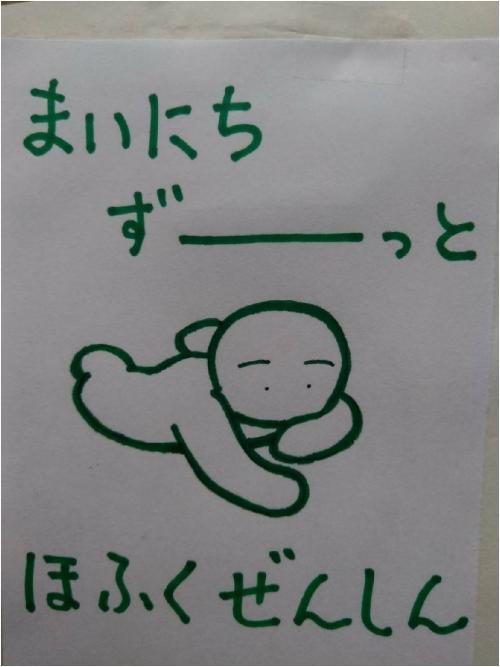 まいにち
ず━━っと
ほふくぜんしん